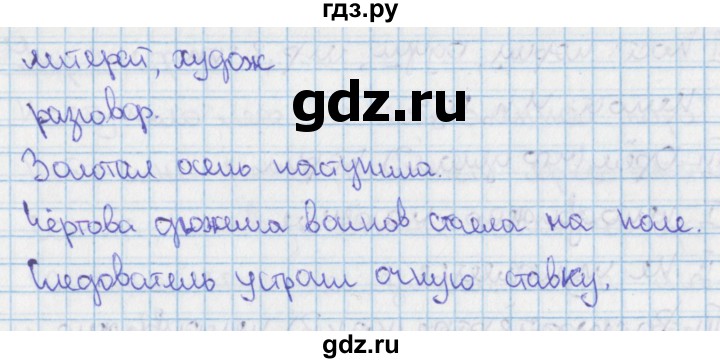 гдз.ру
литерат, худож
gdz.ru
разговор.
Золотая осень наступила.
Чёртова дюжина воинов стояла на поле.
Следователь устроил очную ставку.